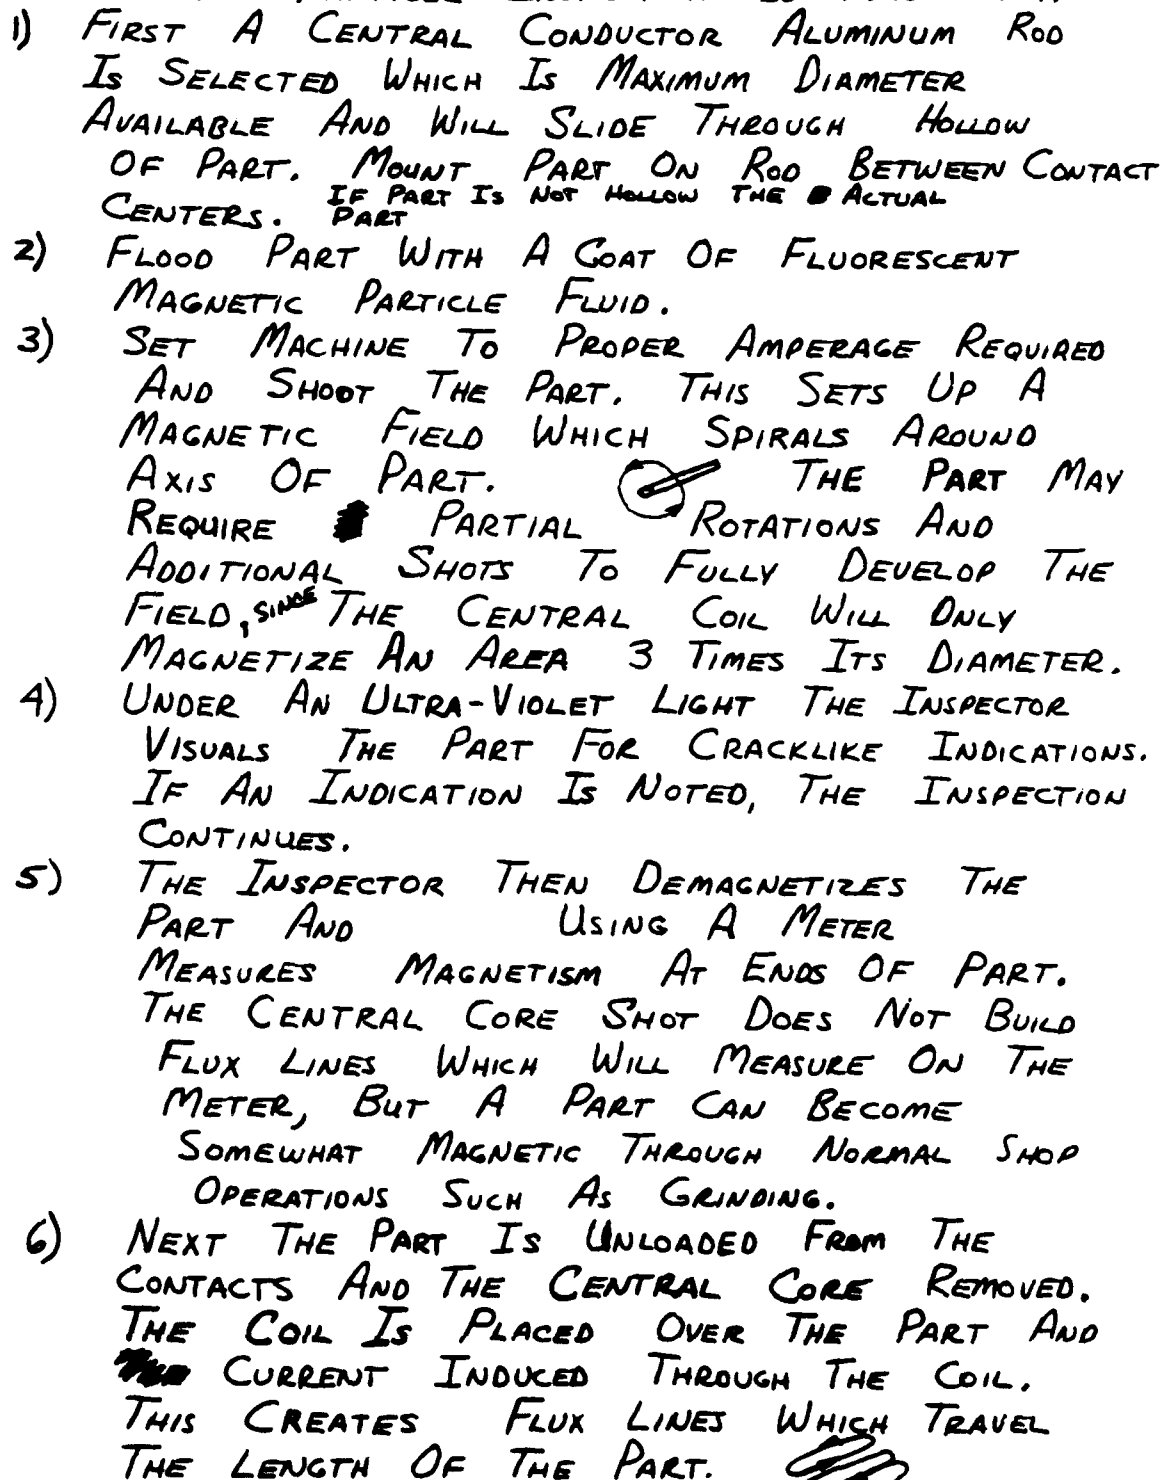 1) FIRST A CENTRAL CONDUCTOR ALUMINUM ROD
IS SELECTED WHICH IS MAXIMUM DIAMETER
AVAILABLE AND WILL SLIDE THROUGH HOLLOW
OF PART. MOUNT PART ON ROD BETWEEN CONTACT
CENTERS. IF PART IS NOT HOLLOW THE ACTUAL
PART
2) FLOOD PART WITH A COAT OF FLUORESCENT
MAGNETIC PARTICLE FLUID.
3) SET MACHINE TO PROPER AMPERAGE REQUIRED
AND SHOOT THE PART. THIS SETS UP A
MAGNETIC FIELD WHICH SPIRALS AROUND
AXIS OF PART. THE PART MAY
REQUIRE PARTIAL ROTATIONS AND
ADDITIONAL SHOTS TO FULLY DEVELOP THE
FIELD, SINCE THE CENTRAL COIL WILL ONLY
MAGNETIZE AN AREA 3 TIMES ITS DIAMETER.
4) UNDER AN ULTRA-VIOLET LIGHT THE INSPECTOR
VISUALS THE PART FOR CRACKLIKE INDICATIONS.
IF AN INDICATION IS NOTED, THE INSPECTION
CONTINUES.
5) THE INSPECTOR THEN DEMAGNETIZES THE
PART AND USING A METER
MEASURES MAGNETISM AT ENDS OF PART.
THE CENTRAL CORE SHOT DOES NOT BUILD
FLUX LINES WHICH WILL MEASURE ON THE
METER, BUT A PART CAN BECOME
SOMEWHAT MAGNETIC THROUGH NORMAL SHOP
OPERATIONS SUCH AS GRINDING.
6) NEXT THE PART IS UNLOADED FROM THE
CONTACTS AND THE CENTRAL CORE REMOVED.
THE COIL IS PLACED OVER THE PART AND
CURRENT INDUCED THROUGH THE COIL.
THIS CREATES FLUX LINES WHICH TRAVEL
THE LENGTH OF THE PART.